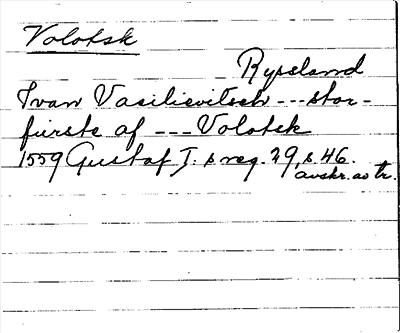 Volotsk
Ryssland
Ivan Vasilievitsch --- stor-
furste af --- Volotsk
1559 Gustaf I. s reg. 29, s. 46.
avskr. av tr.